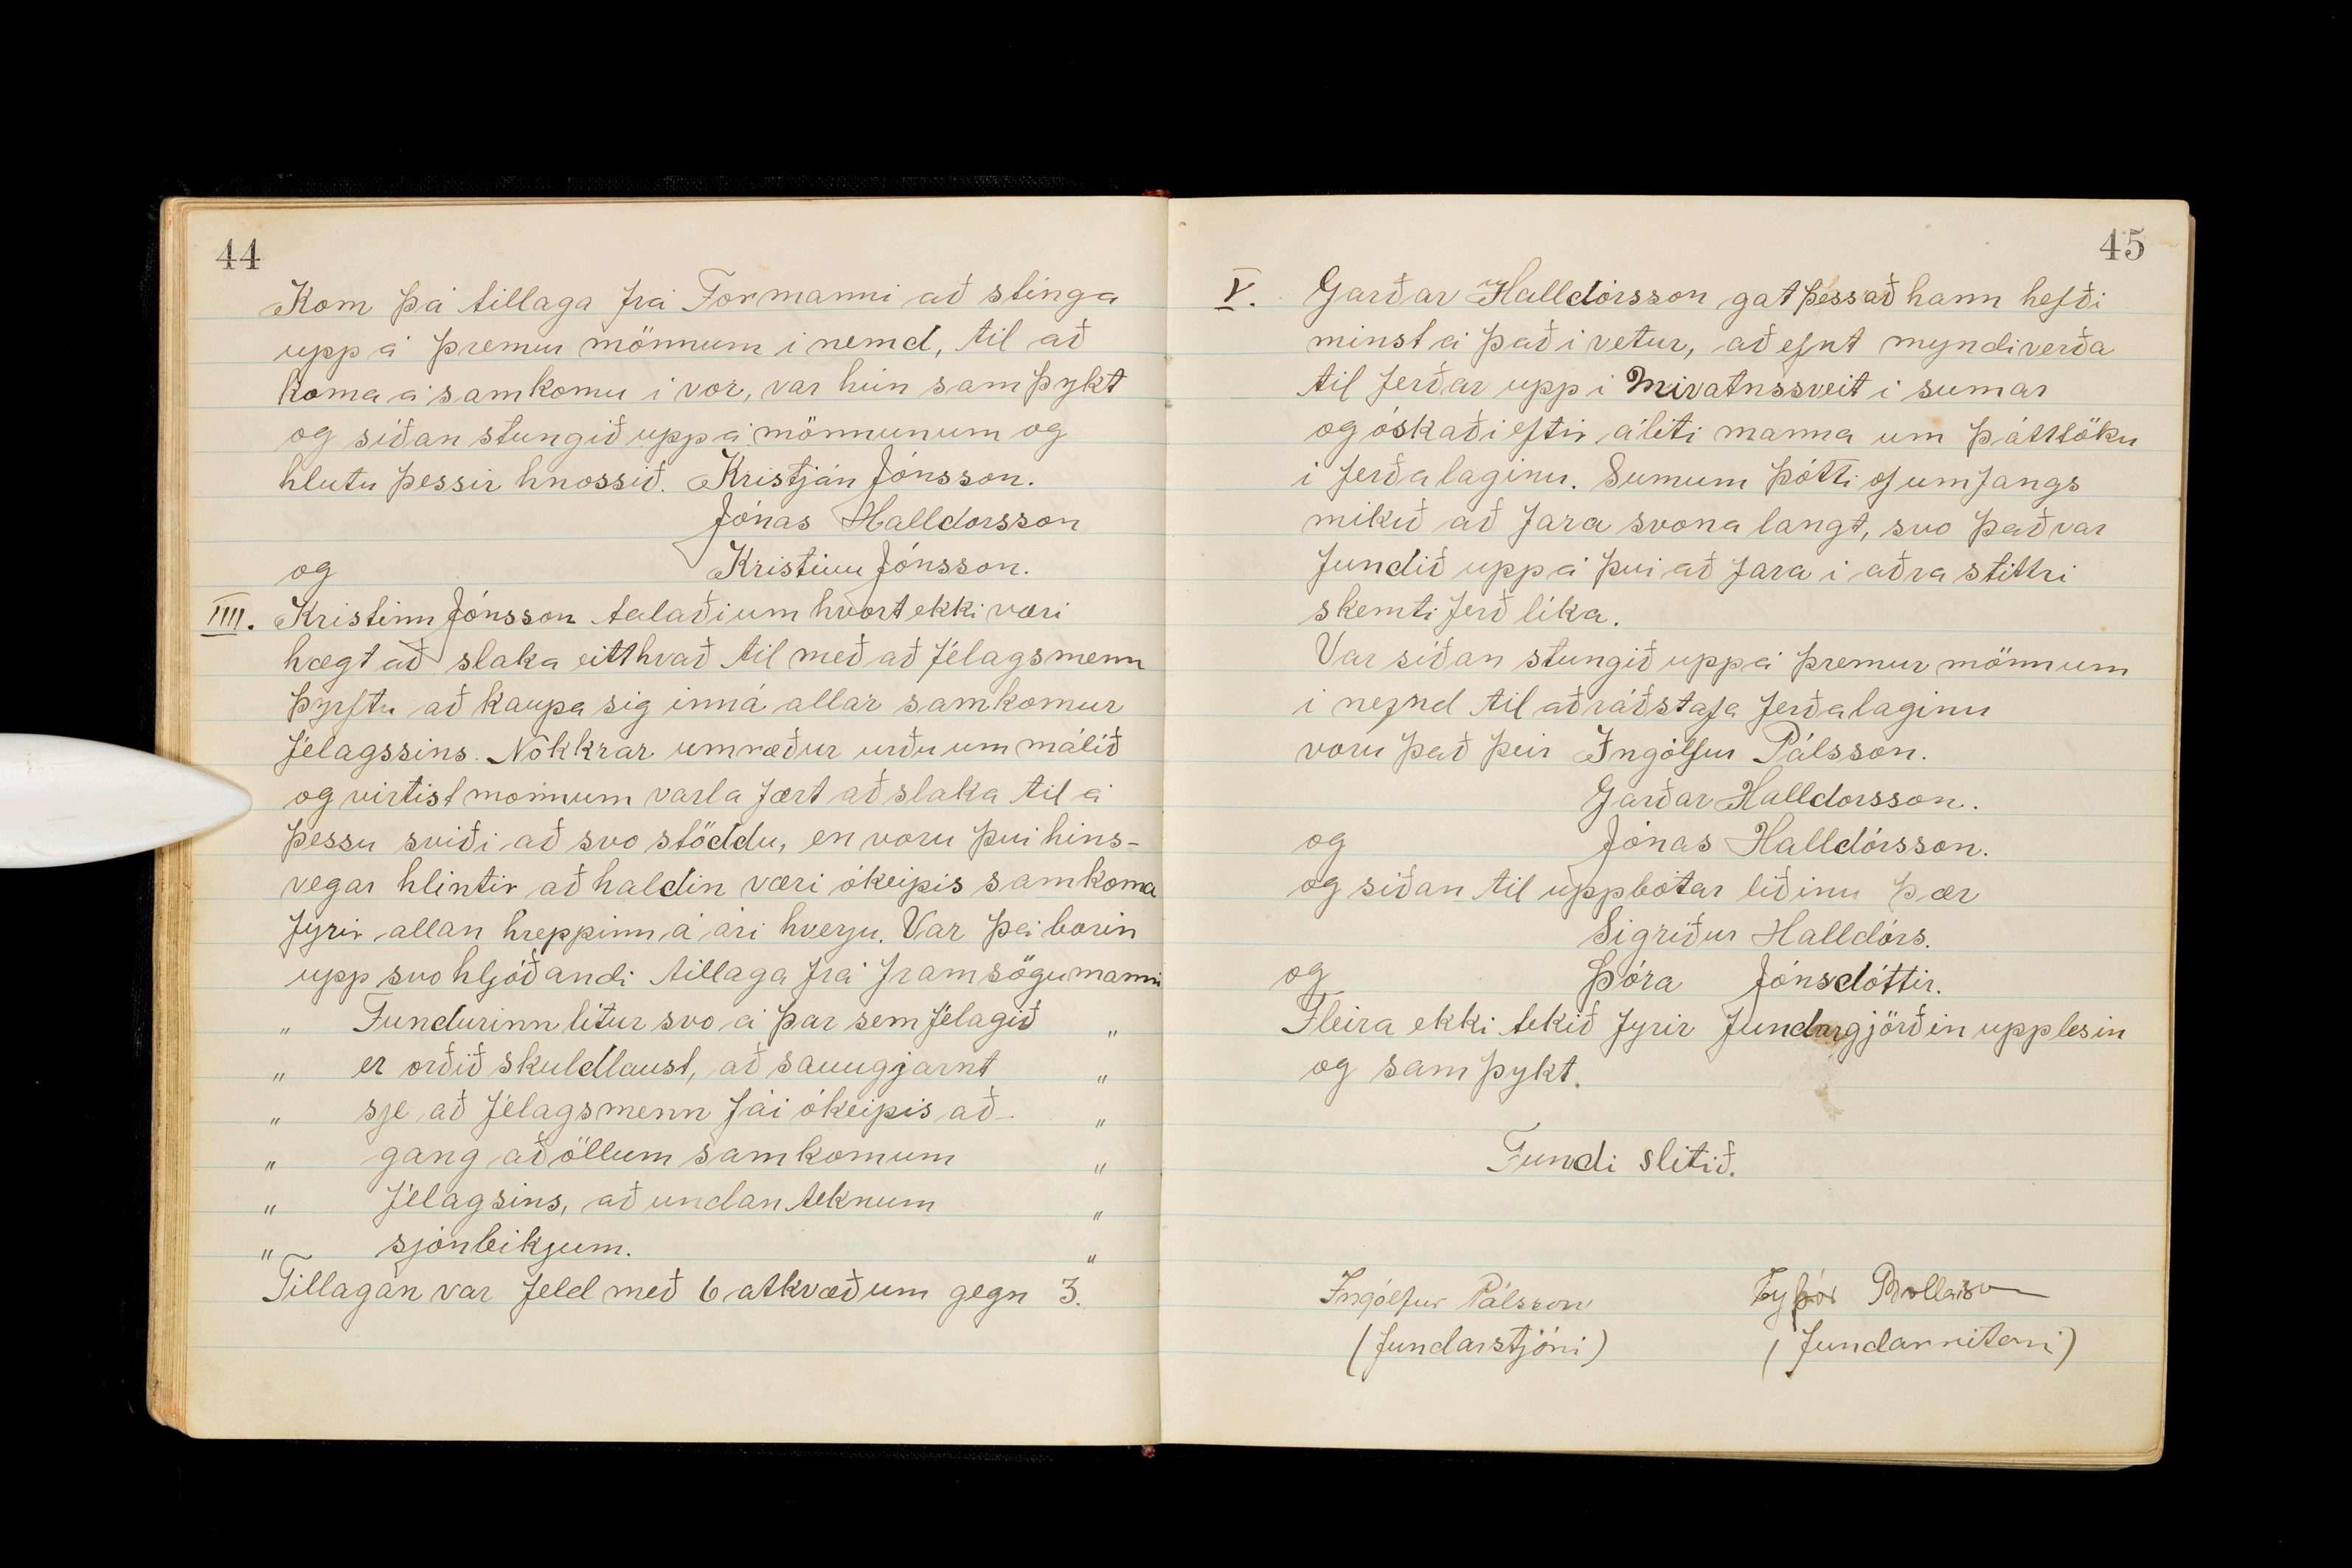 44
Kom þá tillaga frá Formanni að stinga
upp á þremur mönnum i nemd, til að
koma á samkomu i vor, var hún samþykt
og síðan stungið upp á mönnunum og
hlutu þessir hnossið. Kristján Jónsson.
Jónas Halldorsson
og Kristinn Jónsson.
IIII. Kristinn Jónsson talaði um hvort ekki væri
hægt að slaka eitthvað til með að félagsmenn
þyrftu að kaupa sig inná allar samkomur
félagssins. Nokkrar umræður urðu um málið
og virtist mönnum varla fært að slaka til á
þessu sviði að svo stöddu, en voru þvi hins-
vegar hlintir að haldin væri ókeipis samkoma
fyrir allan hreppinn á ári hverju. Var þá borin
upp svo hljóðandi tillaga frá framsögumanni
„ Fundurinn lítur svo á þar sem félagið „
„ er orðið skuldlaust, að sanngjarnt „
„ sje að félagsmenn fái ókeipis að- „
„ gang að öllum samkomum „
„ félagsins, að undanteknum „
„ sjónleikjum. „
Tillagan var feld með 6 atkvæðum gegn 3.
45
V. Garðar Halldórsson gat þess að hann hefði
minst á það i vetur, að efnt myndi verða
til ferðar upp i Mivatnssveit i sumar
og óskaði eftir áliti manna um þátttöku
i ferðalaginu. Sumum þótti of umfangs
mikið að fara svona langt, svo það var
fundið upp á þvi að fara i aðra stittri
skemtiferð líka.
Var síðan stungið upp á þremur mönnum
i nefnd til að ráðstafa ferðalaginu
voru það þeir Ingólfur Pálsson.
Garðar Halldorsson.
og Jónas Halldórsson.
og síðan til uppbótar liðinu þær
Sigríður Halldórs.
og Þóra Jónsdóttir.
Fleira ekki tekið fyrir fundargjörðin upplesin
og samþykt.
Fundi slitið.
Ingólfur Pálsson Eyþór
(fundarstjóri) (fundarritari)